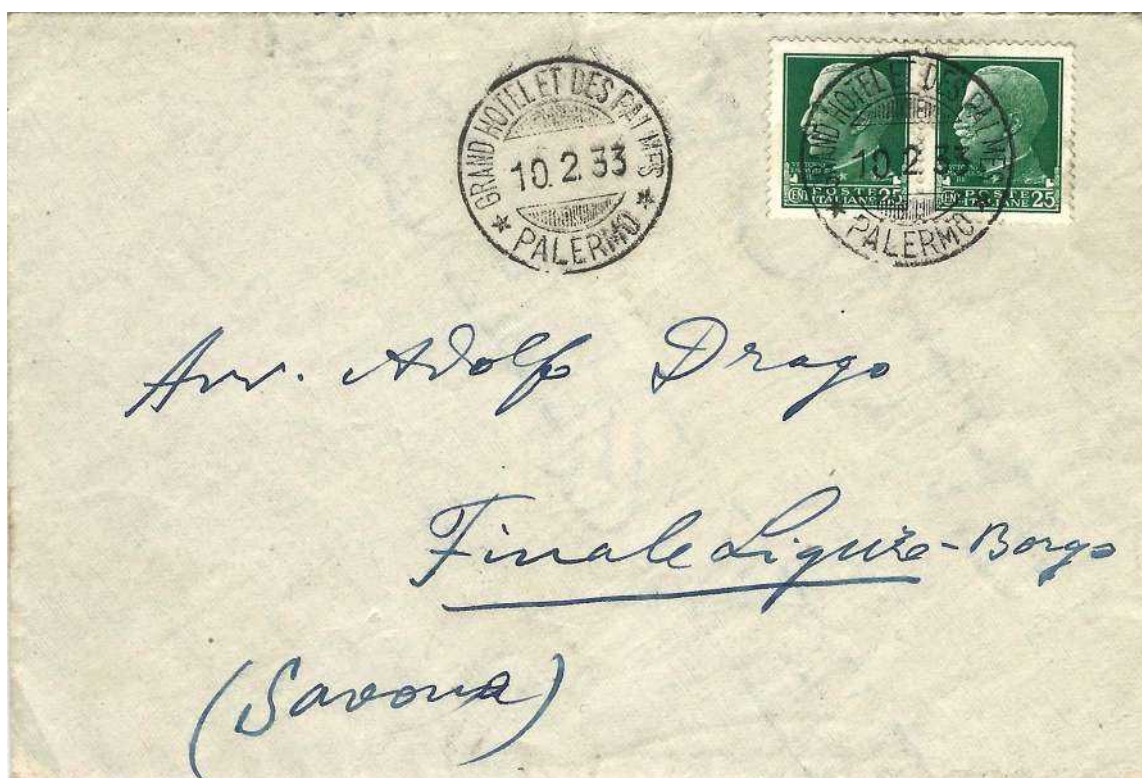 GRAND HOTEL ET DES PALMES
10.2.33
PALERMO
GRAND HOTEL ET DES PALMES
10.2.33
PALERMO
CENT. POSTE ITALIANE 25
CENT. POSTE ITALIANE 25
Avv. Adolfo Drago
Finale Ligure-Borgo
(Savona)